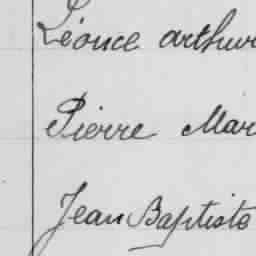 Léonce arthur
Pierre Mar
Jean Baptiste